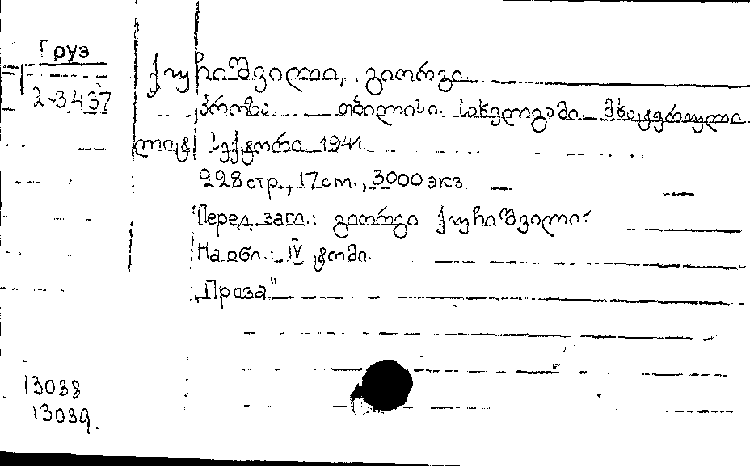 Груз
2-3437
ქუჩიშვილი, გიორგი
პროზა. თბილისი. სახელგამი მხატვრული
ლიტ სექტორი 1941
228 стр., 17 cm., 3000 экз
Перед загл.: გიორგი ქუჩიშვილი:
На обл.: IV ტომი.
„Проза"
13038
13039.